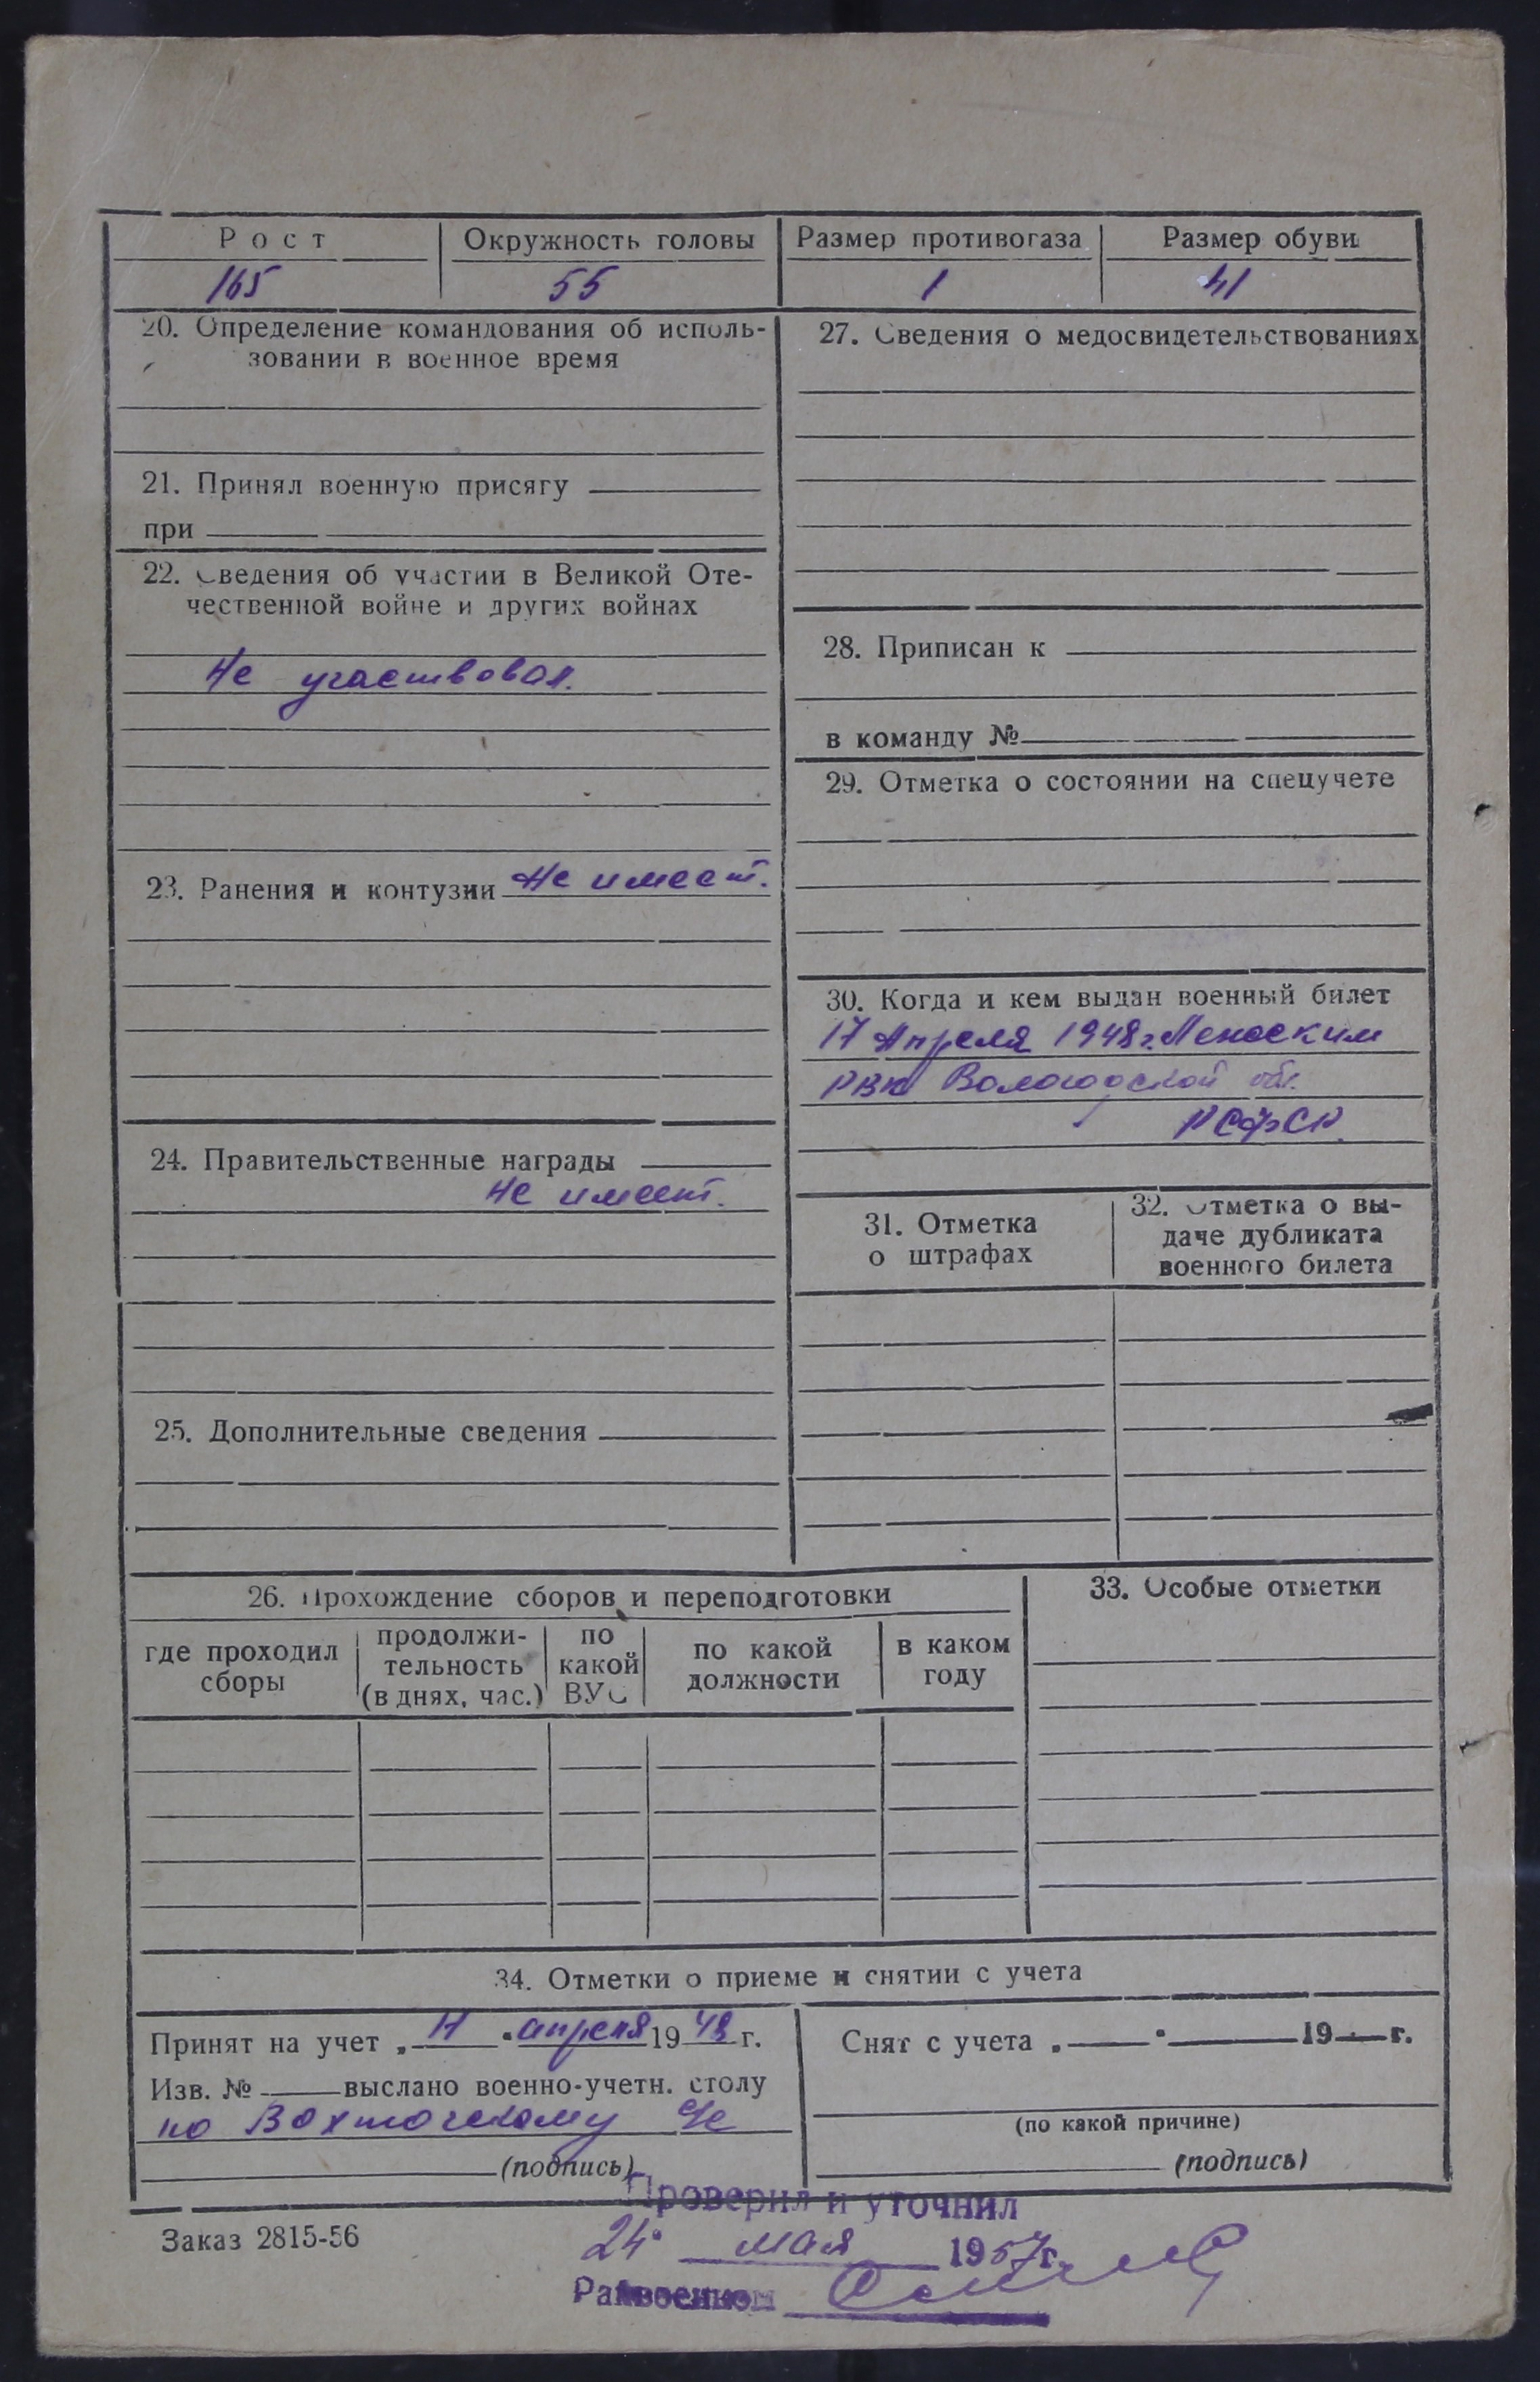 Рост Окружность головы Размер противогаза Размер обуви
165 55 1 41
20. Определение командования об исполь-
зовании в военное время
21. Принял военную присягу
при
22. Сведения об участии в Великой Оте-
чественной войне и других войнах
Не участвовал.
23. Ранения и контузии Не имеет.
24. Правительственные награды
Не имеет.
25. Дополнительные сведения
27. Сведения о медосвидетельствованиях
28. Приписан к
в команду №
29. Отметка о состоянии на спецучете
30. Когда и кем выдан военный билет
17 Апреля 1948 г.
РВК Вологодской обл.
РСФСР.
31. Отметка
о штрафах
32. Отметка о вы-
даче дубликата
военного билета
26. Прохождение сборов и переподготовки
где проходил
сборы
продолжи-
тельность
(в днях, час.)
по
какой
ВУС
по какой
должности
в каком
году
33. Особые отметки
34. Отметки о приеме и снятии с учета
Принят на учет „ " апреля 1948 г.
Изв. № выслано военно-учетн. столу
по
(подпись)
Снят с учета „ " 19 г.
(по какой причине)
(подпись)
Проверил и уточнил
24 мая 1957 г.
Заказ 2815-56